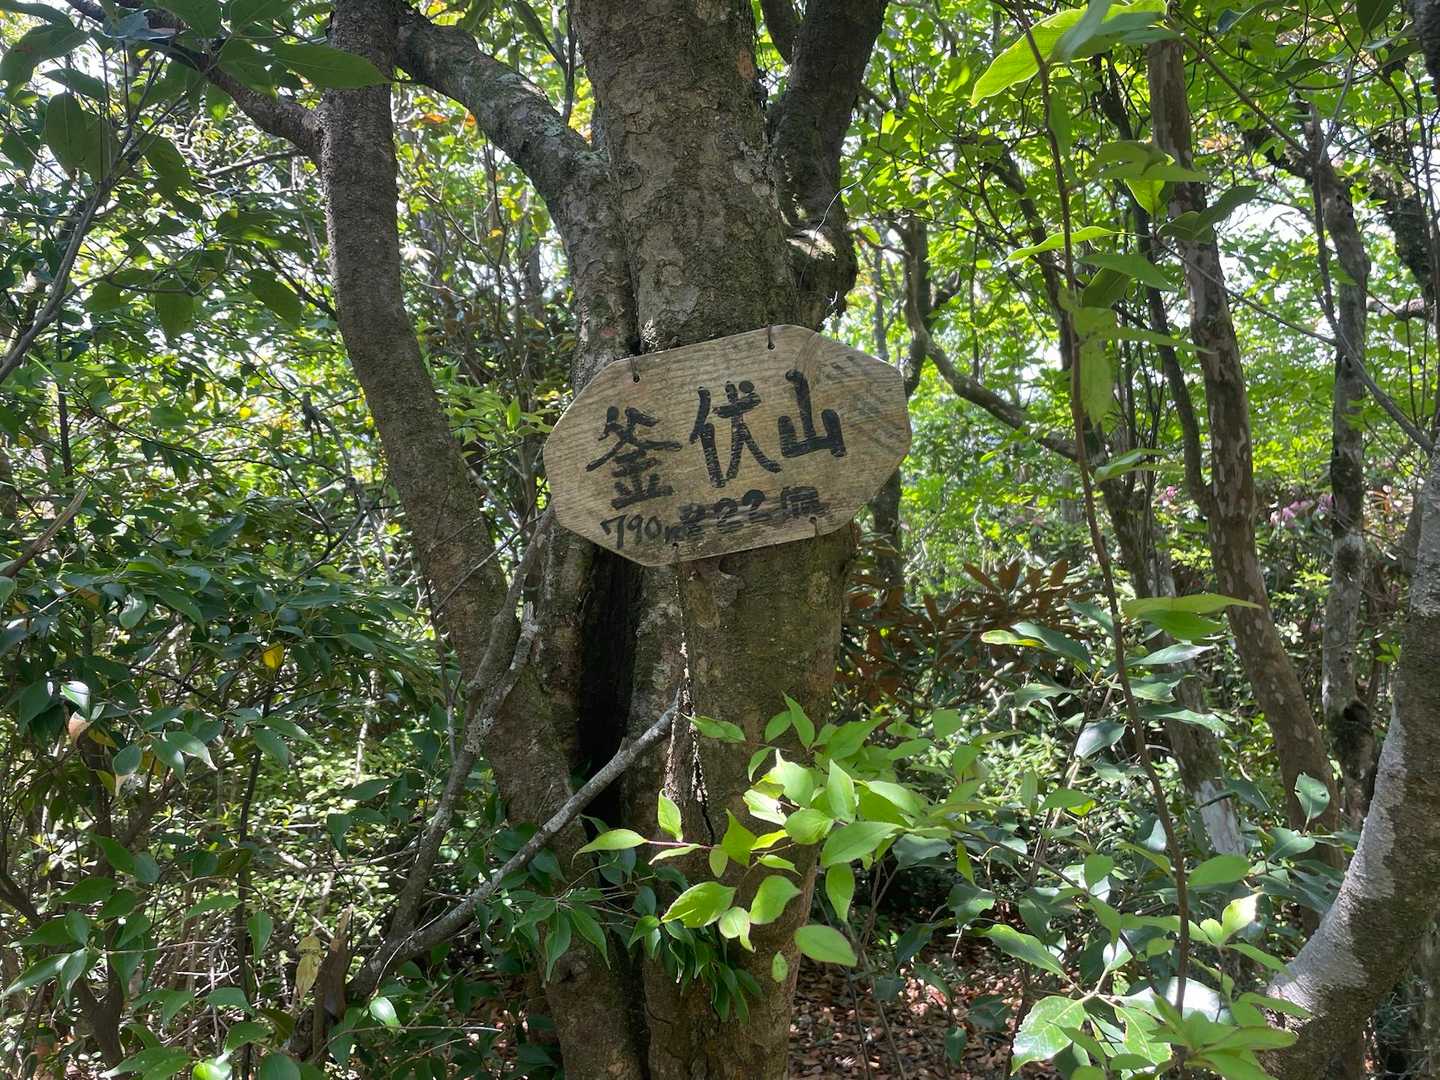 釜伏山
790m